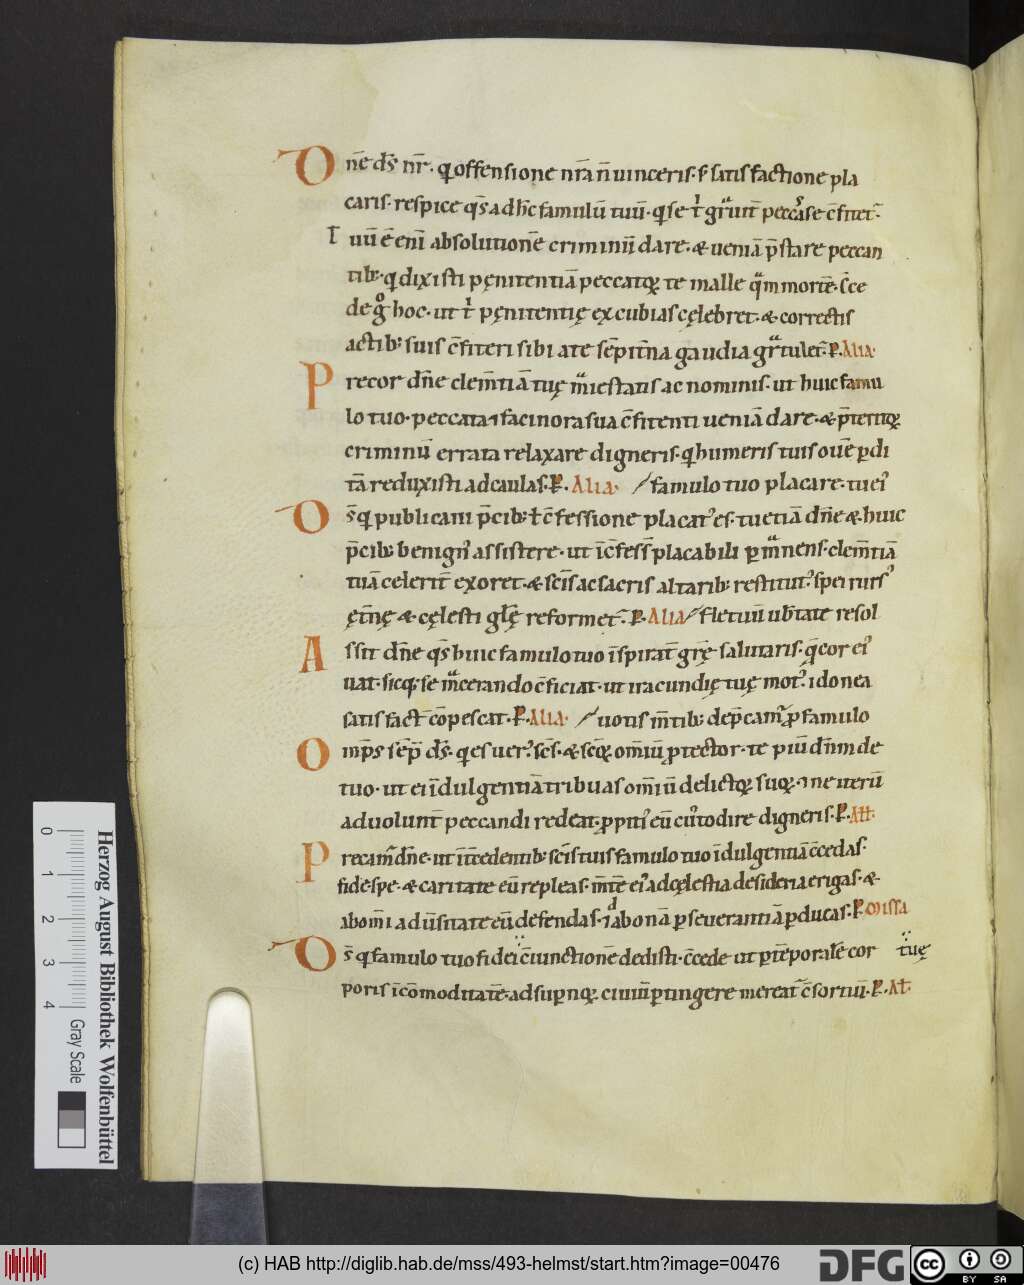 Dn̄e ds̄ nr̄. q̇ offensione nr̄a n̄ uinceris. s; satisfactione pla
caris. respice qs̄ ad hc̄ famulū tuū. q̇ se t̄ grauit̄ peccasse c̄fitet̄.
Tuū ē enī absolutionē criminū dare. & ueniā p̄stare peccan
tib;. q̇ dixisti pęnitentiā peccatoꝝ te malle quam mortē. c̄ce
de g̊ hoc. ut t̄ pęnitentię excubias cęlebret. & correctis
actib; suis c̄fiteri sibi a te sēpit̄na gaudia gratulet̄. P. Alia.
Precor dn̄e clem̄tiā tuę maiestatis ac nominis. ut huic famu
lo tuo. peccata ⁊ facinora sua c̄fitenti ueniā dare. & p̄teritoꝝ
criminū errata relaxare digneris. q̇ humeris tuis ouē ꝑdi
tā reduxisti ad caulas. P. Alia. / famulo tuo placare. tu ei᾽
Ds̄ q̇ publicani p̄cib; & c̄fessione placat᾽ es. tu etiā dn̄e & huic
p̄cib; benign᾽ assistere. ut ī c̄fess̄ placabili ꝑmanens. clem̄tiā
tuā celerit̄ exoret. & sc̄is ac sacris altarib; restitut᾽. spei rurs᾽
ęt̄nę & cęlesti glę̄ reformet̄. P. Alia / fletuū ub̄tate resol
Assit dn̄e qs̄ huic famulo tuo īspirat̄ grę̄ salutaris. q̄ cor ei᾽
uat. sicq; se macerando c̄ficiat. ut iracundię tuę mot᾽. idonea
satisfact̄ cōpescat. P. Alia. / uotis m̄tib; dep̄camur ꝓ famulo
Omp̄s sēp̄ ds̄. q̇ es uer᾽. sc̄s. & sc̄oꝝ omīū ꝓtector. te piū dn̄m de
tuo. ut ei īdulgentiā tribuas omīū delictoꝝ suoꝝ. ⁊ ne iterū
ad uolunt̄ peccandi redeat. ꝓpiti᾽ eū custodire digneris. P. Alł.
Precam̄ dn̄e. ut īt̄cedentib; sc̄is tuis famulo tuo īdulgentiā c̄cedas.
fide spe. & caritate eū repleas. m̄tē ei᾽ ad cęlestia desideria erigas. &
ab omī adūsitate eū defendas. ⁊ ad bonā ꝑseuerantiā ꝑducas. P. Missa
Ds̄ q̇ famulo tuo fidei c̄iunctionē dedisti. c̄cede ut ꝑ tēporalē cor tuę
poris īcōmoditatē. ad suꝑnoꝝ ciuiū ꝑtingere mereat̄ c̄sortiū. P. Ał.
0 1 2 3 4
Herzog August Bibliothek Wolfenbüttel
Gray Scale
(c) HAB http://diglib.hab.de/mss/493-helmst/start.htm?image=00476
DFG
cc
BY SA